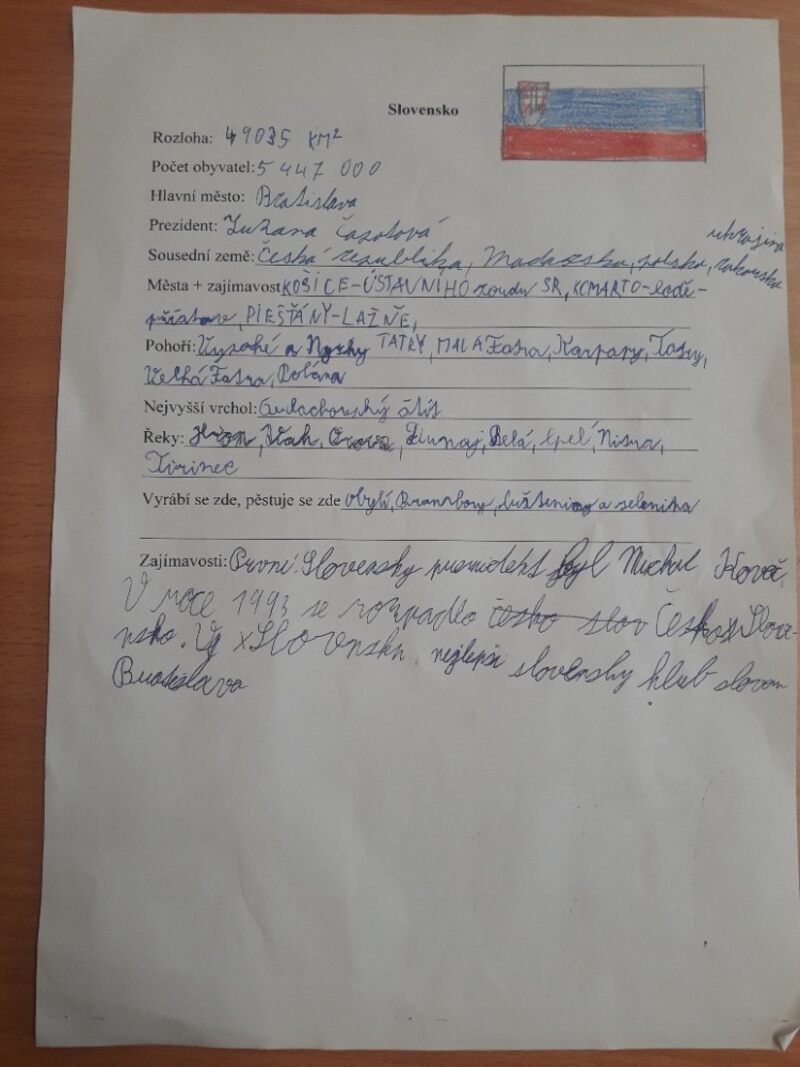 Slovensko
Rozloha: 49035 KM²
Počet obyvatel: 5 447 000
Hlavní město: Bratislava
Prezident: Zuzana Čapotová
ukrajina
Sousední země: Česká republika, Madarsko, polsko, rakousko
Města + zajímavost KOŠICE-ÚSTAVNIHO soudu SR, KOMARTO-lodě-
přístav, PIEŠŤÁNY-LAŽNĚ,
Pohoří: Vysoké a Nyzky TATRY, MALA Fatra, Karpaty, Tatry,
Velká Fatra, Polána
Nejvyšší vrchol: Gerlachovský štít
Řeky: Hron, Váh, Orava, Dunaj, Belá, Ipel, Nitra,
Tirinec
Vyrábí se zde, pěstuje se zde obylí, Brambory, lušteniny a zelenina
Zajímavosti: První Slovensky prezident byl Michal Kováč.
V roce 1993 se rozpadlo česko slov Česko x Slove-
nsko. x Slovensku, nejlepsi slovensky klub slovan
Bratislava